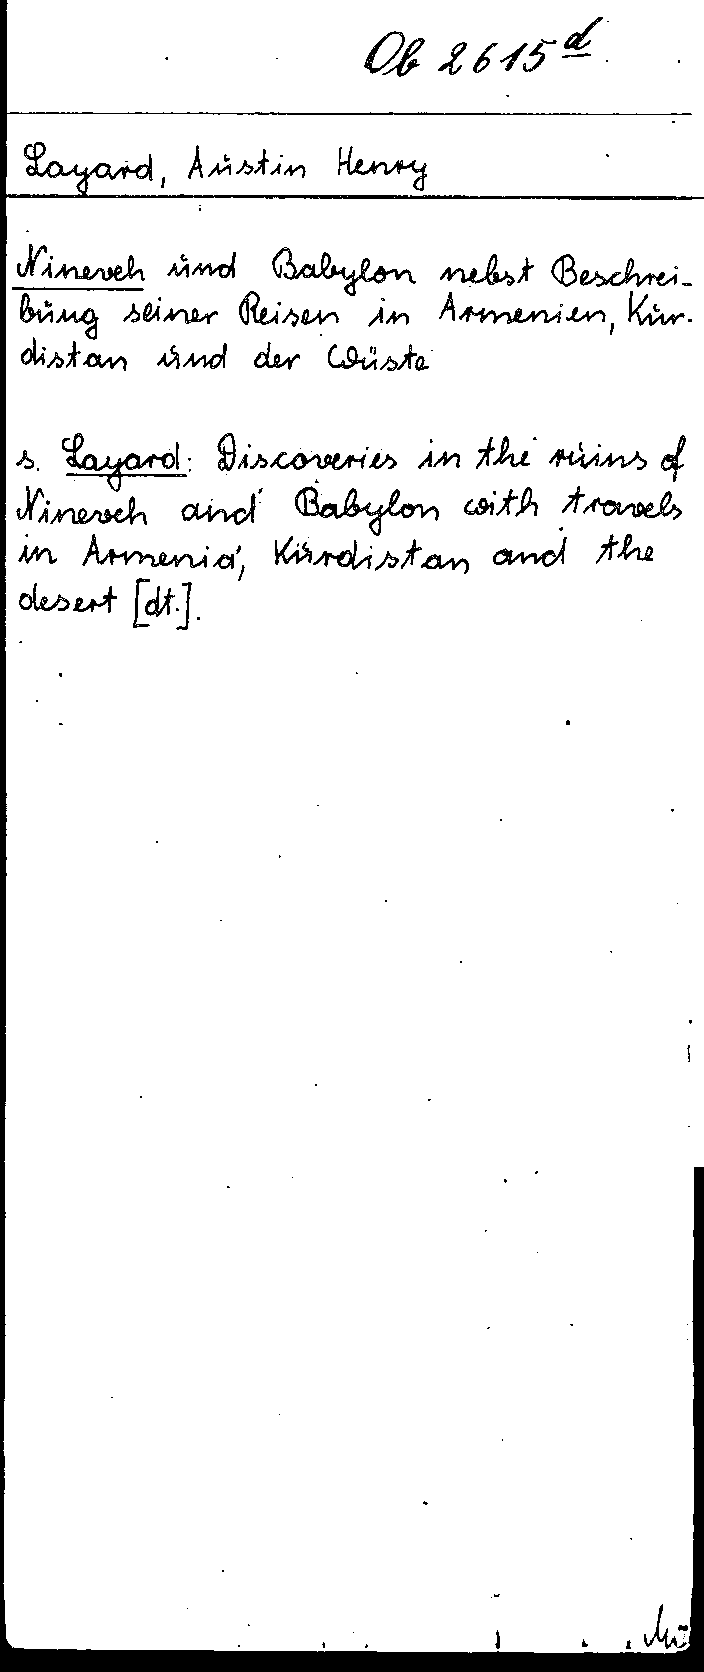 Ob 2615 d
Layard, Austin Henry
Nineveh und Babylon nebst Beschrei-
bung seiner Reisen in Armenien, Kur-
distan und der Wüste
s. Layard: Discoveries in the ruins of
Nineveh and Babylon with travels
in Armenia, Kurdistan and the
desert [dt.].
Mü